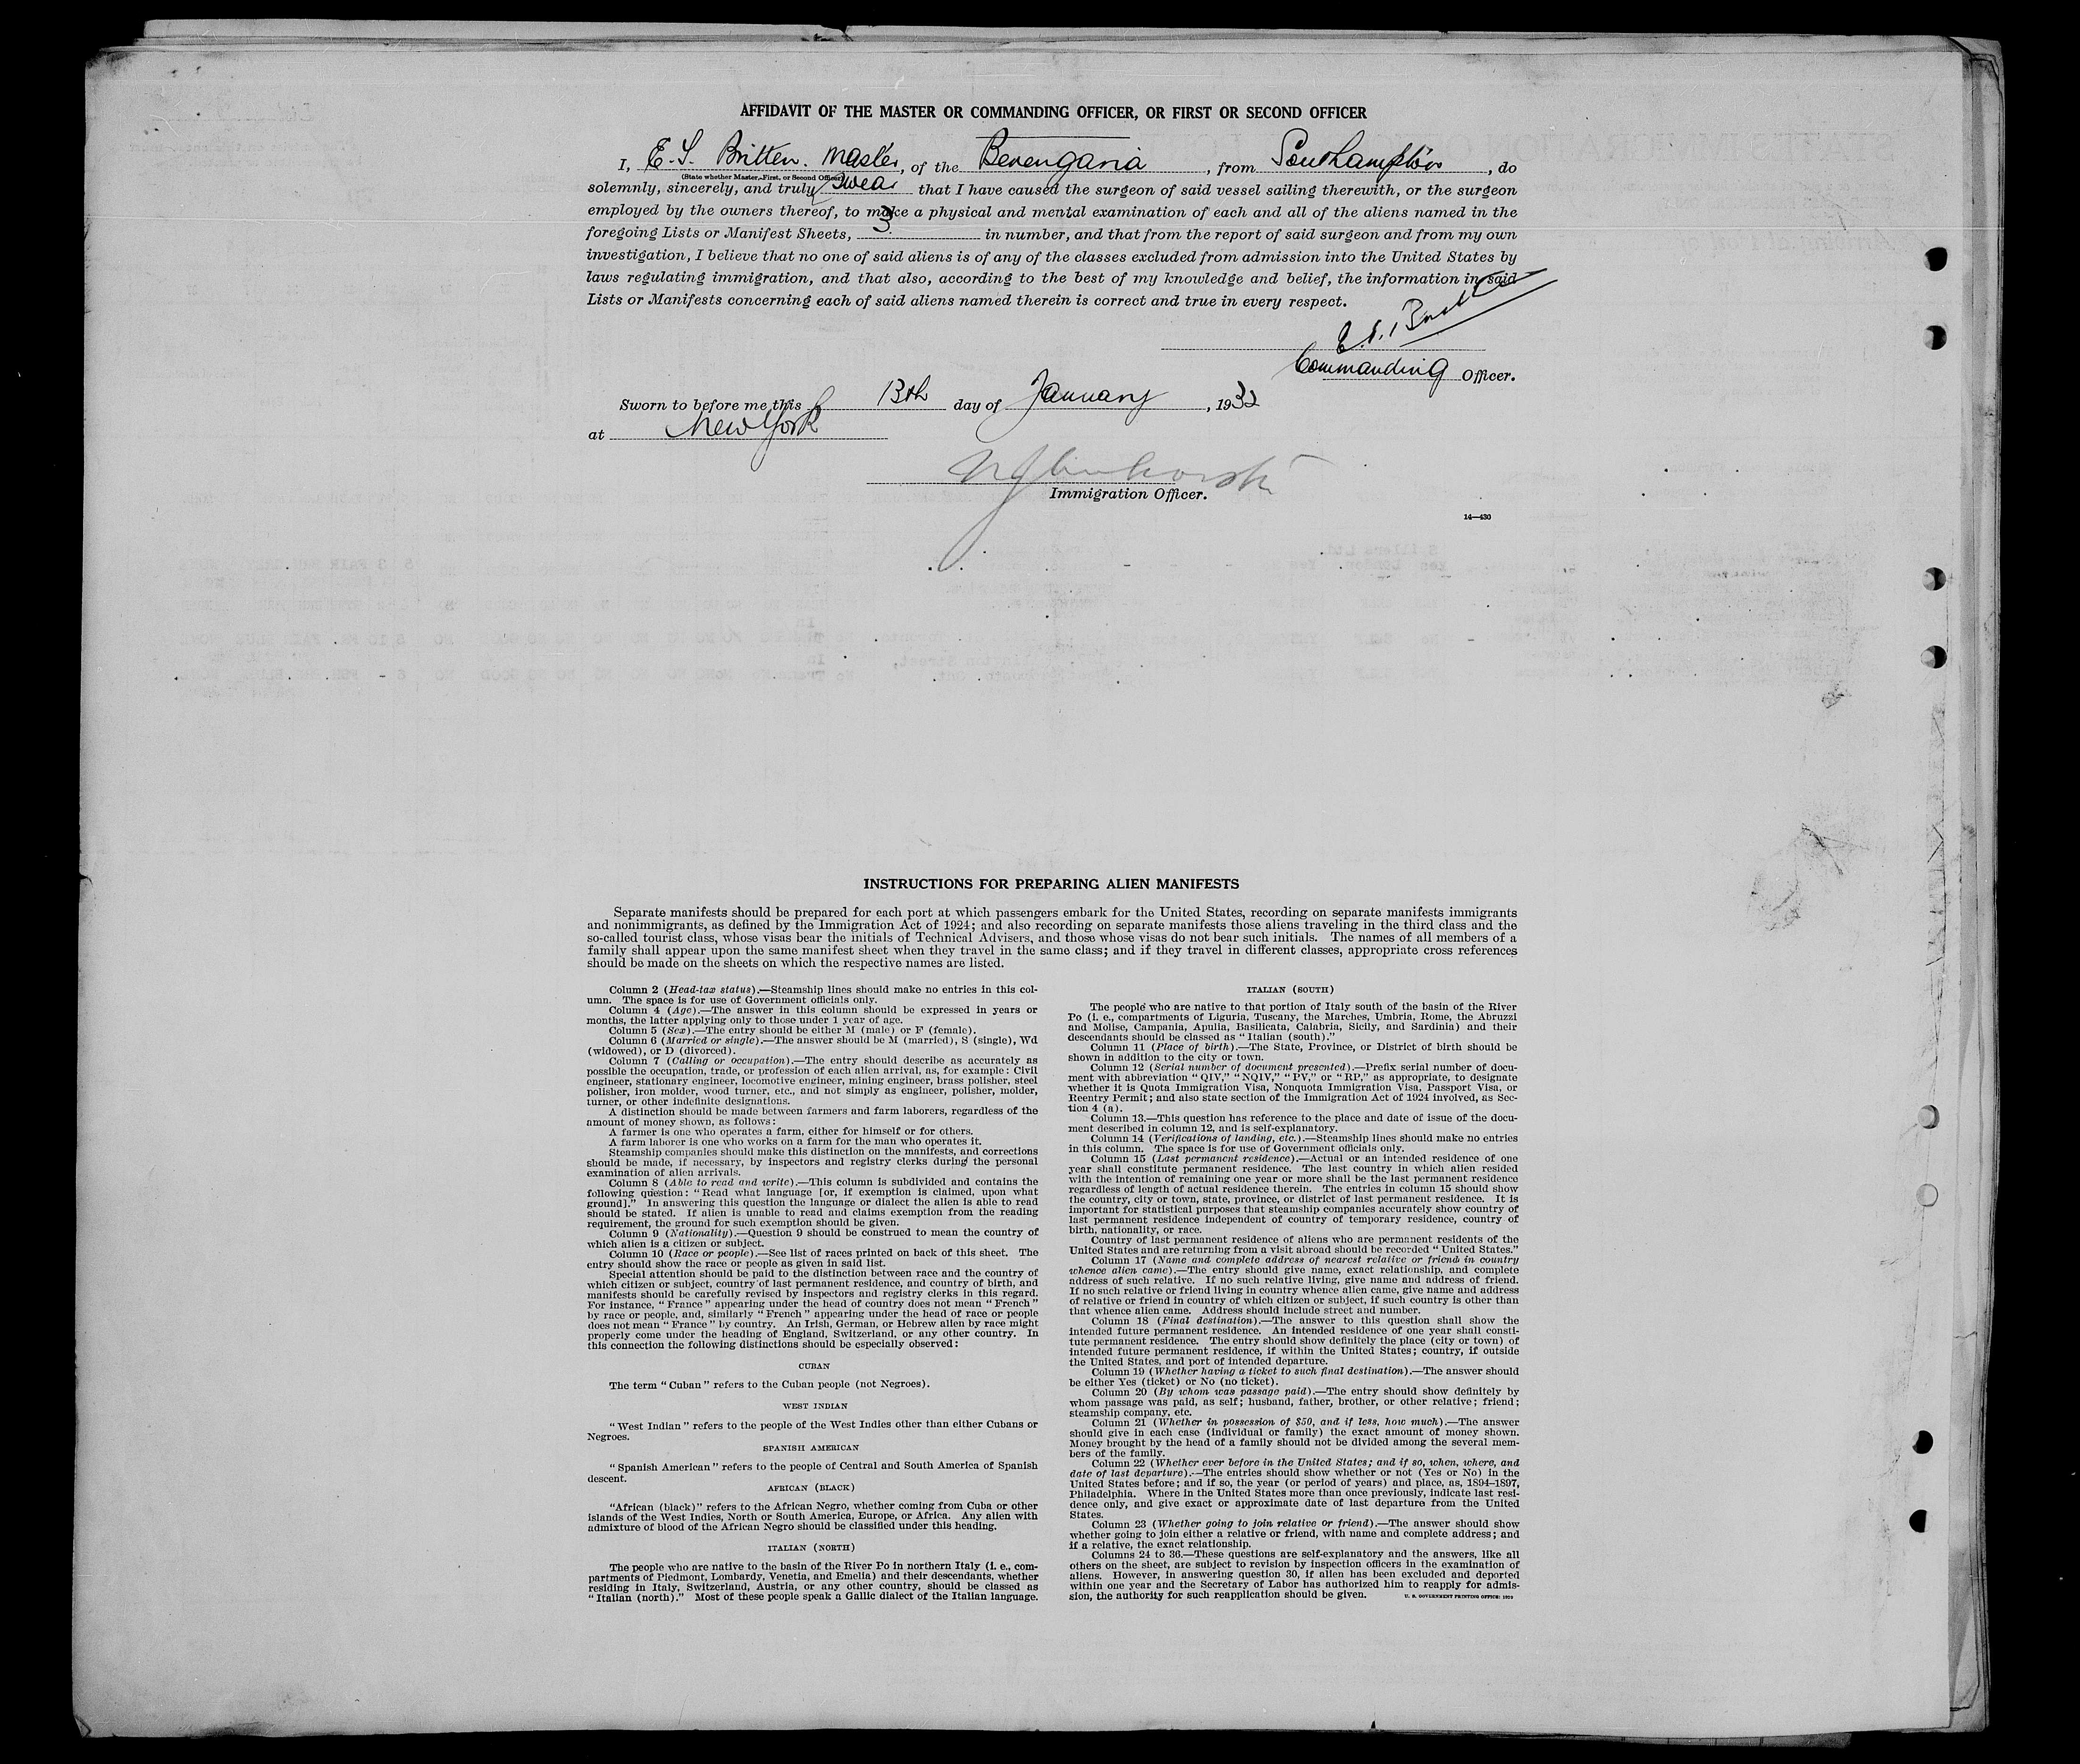 AFFIDAVIT OF THE MASTER OR COMMANDING OFFICER, OR FIRST OR SECOND OFFICER
I, E. S. Britten. Master, of the Berengaria, from Southampton, do
(State whether Master, First, or Second Officer)
solemnly, sincerely, and truly swear that I have caused the surgeon of said vessel sailing therewith, or the surgeon
employed by the owners thereof, to make a physical and mental examination of each and all of the aliens named in the
foregoing Lists or Manifest Sheets, 3. in number, and that from the report of said surgeon and from my own
investigation, I believe that no one of said aliens is of any of the classes excluded from admission into the United States by
laws regulating immigration, and that also, according to the best of my knowledge and belief, the information in said
Lists or Manifests concerning each of said aliens named therein is correct and true in every respect.
E. S. Britten
Commanding Officer.
Sworn to before me this 13th day of January, 1932
at New York
Immigration Officer.
14—430
INSTRUCTIONS FOR PREPARING ALIEN MANIFESTS
Separate manifests should be prepared for each port at which passengers embark for the United States, recording on separate manifests immigrants
and nonimmigrants, as defined by the Immigration Act of 1924; and also recording on separate manifests those aliens traveling in the third class and the
so-called tourist class, whose visas bear the initials of Technical Advisers, and those whose visas do not bear such initials. The names of all members of a
family shall appear upon the same manifest sheet when they travel in the same class; and if they travel in different classes, appropriate cross references
should be made on the sheets on which the respective names are listed.
Column 2 (Head-tax status).—Steamship lines should make no entries in this col-
umn. The space is for use of Government officials only.
Column 4 (Age).—The answer in this column should be expressed in years or
months, the latter applying only to those under 1 year of age.
Column 5 (Sex).—The entry should be either M (male) or F (female).
Column 6 (Married or single).—The answer should be M (married), S (single), Wd
(widowed), or D (divorced).
Column 7 (Calling or occupation).—The entry should describe as accurately as
possible the occupation, trade, or profession of each alien arrival, as, for example: Civil
engineer, stationary engineer, locomotive engineer, mining engineer, brass polisher, steel
polisher, iron molder, wood turner, etc., and not simply as engineer, polisher, molder,
turner, or other indefinite designations.
A distinction should be made between farmers and farm laborers, regardless of the
amount of money shown, as follows:
A farmer is one who operates a farm, either for himself or for others.
A farm laborer is one who works on a farm for the man who operates it.
Steamship companies should make this distinction on the manifests, and corrections
should be made, if necessary, by inspectors and registry clerks during the personal
examination of alien arrivals.
Column 8 (Able to read and write).—This column is subdivided and contains the
following question: "Read what language [or, if exemption is claimed, upon what
ground]." In answering this question the language or dialect the alien is able to read
should be stated. If alien is unable to read and claims exemption from the reading
requirement, the ground for such exemption should be given.
Column 9 (Nationality).—Question 9 should be construed to mean the country of
which alien is a citizen or subject.
Column 10 (Race or people).—See list of races printed on back of this sheet. The
entry should show the race or people as given in said list.
Special attention should be paid to the distinction between race and the country of
which citizen or subject, country of last permanent residence, and country of birth, and
manifests should be carefully revised by inspectors and registry clerks in this regard.
For instance, "France" appearing under the head of country does not mean "French"
by race or people, and, similarly "French" appearing under the head of race or people
does not mean "France" by country. An Irish, German, or Hebrew alien by race might
properly come under the heading of England, Switzerland, or any other country. In
this connection the following distinctions should be especially observed:
CUBAN
The term "Cuban" refers to the Cuban people (not Negroes).
WEST INDIAN
"West Indian" refers to the people of the West Indies other than either Cubans or
Negroes.
SPANISH AMERICAN
"Spanish American" refers to the people of Central and South America of Spanish
descent.
AFRICAN (BLACK)
"African (black)" refers to the African Negro, whether coming from Cuba or other
islands of the West Indies, North or South America, Europe, or Africa. Any alien with
admixture of blood of the African Negro should be classified under this heading.
ITALIAN (NORTH)
The people who are native to the basin of the River Po in northern Italy (i. e., com-
partments of Piedmont, Lombardy, Venetia, and Emelia) and their descendants, whether
residing in Italy, Switzerland, Austria, or any other country, should be classed as
"Italian (north)." Most of these people speak a Gallic dialect of the Italian language.
ITALIAN (SOUTH)
The people who are native to that portion of Italy south of the basin of the River
Po (i. e., compartments of Liguria, Tuscany, the Marches, Umbria, Rome, the Abruzzi
and Molise, Campania, Apulia, Basilicata, Calabria, Sicily, and Sardinia) and their
descendants should be classed as "Italian (south)."
Column 11 (Place of birth).—The State, Province, or District of birth should be
shown in addition to the city or town.
Column 12 (Serial number of document presented).—Prefix serial number of docu-
ment with abbreviation "QIV," "NQIV," "PV," or "RP," as appropriate, to designate
whether it is Quota Immigration Visa, Nonquota Immigration Visa, Passport Visa, or
Reentry Permit; and also state section of the Immigration Act of 1924 involved, as Sec-
tion 4 (a).
Column 13.—This question has reference to the place and date of issue of the docu-
ment described in column 12, and is self-explanatory.
Column 14 (Verifications of landing, etc.).—Steamship lines should make no entries
in this column. The space is for use of Government officials only.
Column 15 (Last permanent residence).—Actual or an intended residence of one
year shall constitute permanent residence. The last country in which alien resided
with the intention of remaining one year or more shall be the last permanent residence
regardless of length of actual residence therein. The entries in column 15 should show
the country, city or town, state, province, or district of last permanent residence. It is
important for statistical purposes that steamship companies accurately show country of
last permanent residence independent of country of temporary residence, country of
birth, nationality, or race.
Country of last permanent residence of aliens who are permanent residents of the
United States and are returning from a visit abroad should be recorded "United States."
Column 17 (Name and complete address of nearest relative or friend in country
whence alien came).—The entry should give name, exact relationship, and complete
address of such relative. If no such relative living, give name and address of friend.
If no such relative or friend living in country whence alien came, give name and address
of relative or friend in country of which citizen or subject, if such country is other than
that whence alien came. Address should include street and number.
Column 18 (Final destination).—The answer to this question shall show the
intended future permanent residence. An intended residence of one year shall consti-
tute permanent residence. The entry should show definitely the place (city or town) of
intended future permanent residence, if within the United States; country, if outside
the United States, and port of intended departure.
Column 19 (Whether having a ticket to such final destination).—The answer should
be either Yes (ticket) or No (no ticket).
Column 20 (By whom was passage paid).—The entry should show definitely by
whom passage was paid, as self; husband, father, brother, or other relative; friend;
steamship company, etc.
Column 21 (Whether in possession of $50, and if less, how much).—The answer
should give in each case (individual or family) the exact amount of money shown.
Money brought by the head of a family should not be divided among the several mem-
bers of the family.
Column 22 (Whether ever before in the United States; and if so, when, where, and
date of last departure).—The entries should show whether or not (Yes or No) in the
United States before; and if so, the year (or period of years) and place, as, 1894–1897,
Philadelphia. Where in the United States more than once previously, indicate last resi-
dence only, and give exact or approximate date of last departure from the United
States.
Column 23 (Whether going to join relative or friend).—The answer should show
whether going to join either a relative or friend, with name and complete address; and
if a relative, the exact relationship.
Columns 24 to 36.—These questions are self-explanatory and the answers, like all
others on the sheet, are subject to revision by inspection officers in the examination of
aliens. However, in answering question 30, if alien has been excluded and deported
within one year and the Secretary of Labor has authorized him to reapply for admis-
sion, the authority for such reapplication should be given.
U. S. GOVERNMENT PRINTING OFFICE: